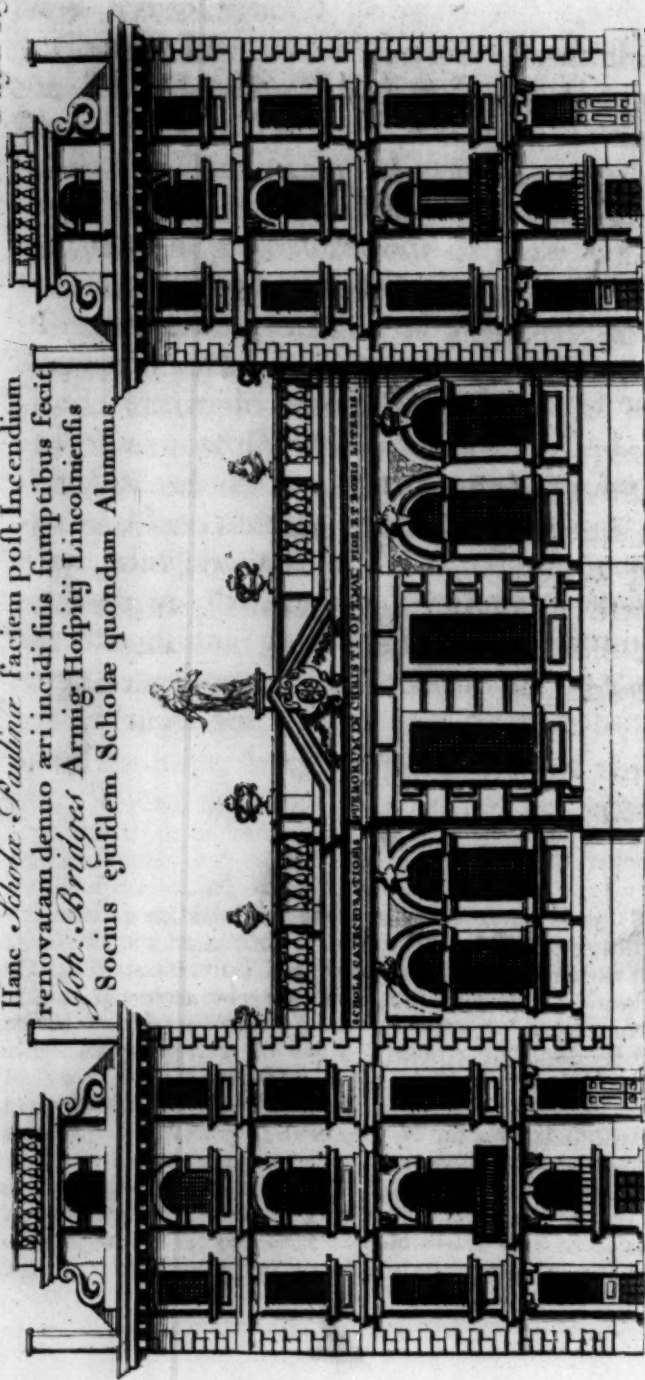 Hanc Scholæ Paulinæ faciem poſt Incendium
renovatam denuo æri incidi ſuis ſumptibus fecit
Joh. Bridges Armig. Hoſpitij Lincolnienſis
Socius ejuſdem Scholæ quondam Alumnus.
SCHOLA CATECHIZATIONIS PUERORUM IN CHRISTI OPT. MAX. FIDE ET BONIS LITERIS.